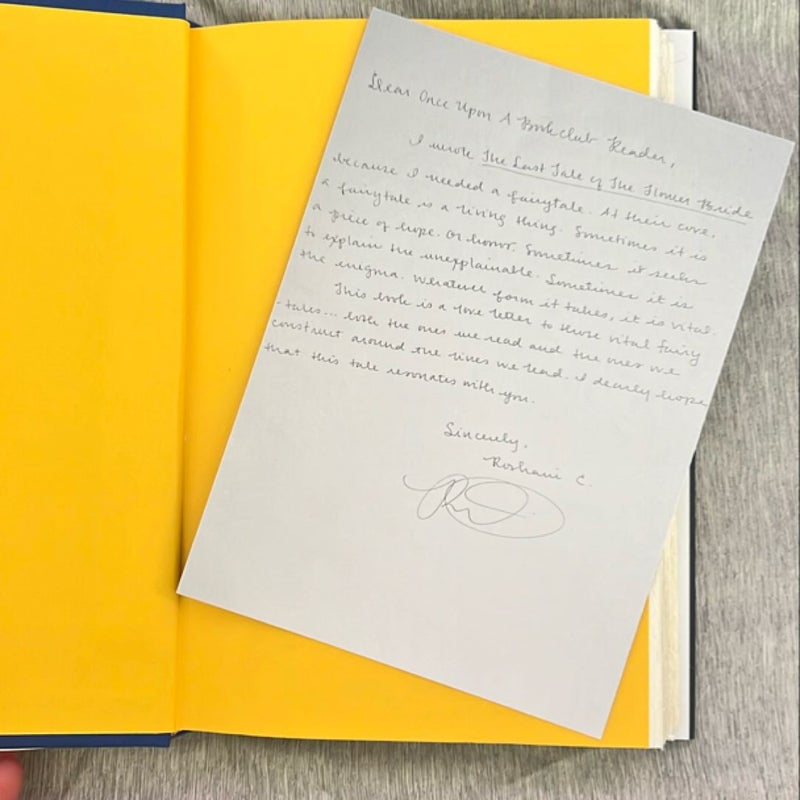 Dear Once Upon A Bookclub Reader,
I wrote The Last Tale of The Flower Bride
because I needed a fairytale. At their core,
a fairytale is a living thing. Sometimes it is
a piece of hope. Or honor. Sometimes it seeks
to explain the unexplainable. Sometimes it is
the enigma. Whatever form it takes, it is vital.
This book is a love letter to those vital fairy
-tales... both the ones we read and the ones we
construct around the lives we lead. I dearly hope
that this tale resonates with you.
Sincerely,
Roshani C.